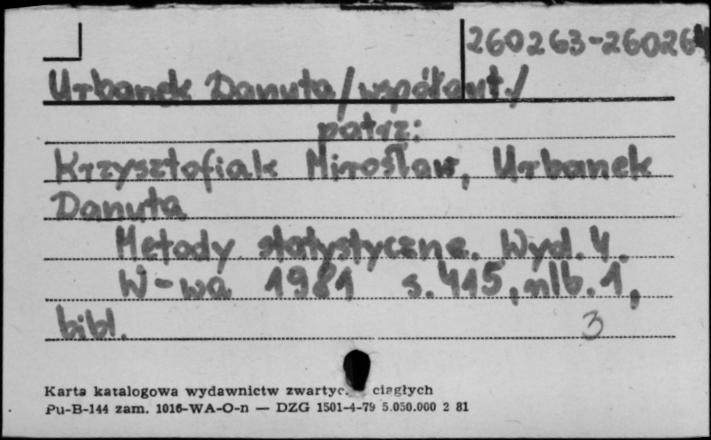 260263-260264
Urbanek Danuta /współaut./
patrz:
Krzysztofiak Mirosław, Urbanek
Danuta
Metody statystyczne. Wyd. 4.
W-wa 1981 s. 415, nlb. 1,
bibl.
3
Karta katalogowa wydawnictw ciągłych
Pu-B-144 zam. 1016-WA-O-n — DZG 1501-4-79 5.050.000 2 81